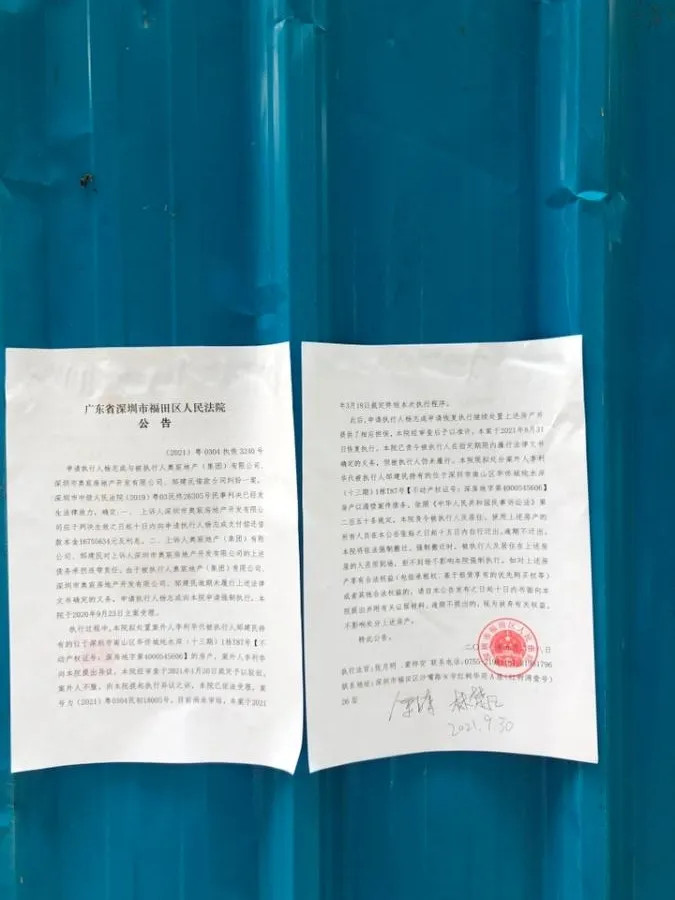 广东省深圳市福田区人民法院
公 告
（2021）粤0304执恢3240号
申请执行人杨志成与被执行人奥宸地产（集团）有限公司、
深圳市奥宸房地产开发有限公司、邹建民借款合同纠纷一案，
深圳市中级人民法院（2019）粤03民终26305号民事判决已经发
生法律效力，确定：一、上诉人深圳市奥宸房地产开发有限公
司应于判决生效之日起十日内向申请执行人杨志成支付偿还借
款本金16755634元及利息。二、上诉人奥宸地产（集团）有限公
司、邹建民对上诉人深圳市奥宸房地产开发有限公司的上述
债务承担连带责任。由于被执行人奥宸地产（集团）有限公司、
深圳市奥宸房地产开发有限公司、邹建民逾期未履行上述法律
文书确定的义务，申请执行人杨志成向本院申请强制执行，本
院于2020年9月23日立案受理。
执行过程中，本院拟处置案外人李利华代被执行人邹建民持
有的位于深圳市南山区华侨城纯水岸（十三期）1栋T87号【不
动产权证号：深房地字第4000545606】的房产，案外人李利华
向本院提出异议，本院经审查于2021年1月20日裁定予以驳回，
案外人不服，向本院提起执行异议之诉，本院已依法受理，案
号为（2021）粤0304民初18005号，目前尚未审结，本案于2021
年3月18日裁定终结本次执行程序。
此后，申请执行人杨志成申请恢复执行继续处置上述房产并
提供了相应担保，本院经审查后予以准许，本案于2021年8月31
日恢复执行。本院已责令被执行人在指定期限内履行法律文书
确定的义务，但被执行人仍未履行。本院现拟处分案外人李利
华代被执行人邹建民持有的位于深圳市南山区华侨城纯水岸
（十三期）1栋T87号【不动产权证号：深房地字第4000545606】
房产以清偿案件债务。依照《中华人民共和国民事诉讼法》第
二百五十条规定，本院责令被执行人及居住、使用上述房产的
所有人员在本公告张贴之日起十五日内自行迁出，逾期不迁出，
本院将依法强制搬迁。强制搬迁时，被执行人及居住在上述房
屋的人员须到场，拒不到场不影响本院强制执行。如对上述房
产享有合法权益（包括承租权、基于租赁享有的优先购买权等）
或者其他合法权益的，请自本公告发布之日起十日内书面向本
院提出并附有关证据材料，逾期不提出的，视为放弃有关权益，
不影响处分上述房产。
特此公告。
执行法官：殷月明、黄祎容 联系电话：0755-
联系地址：深圳市福田区沙嘴路8号红树华府A座（红树湾壹号）
26层
2021.9.30